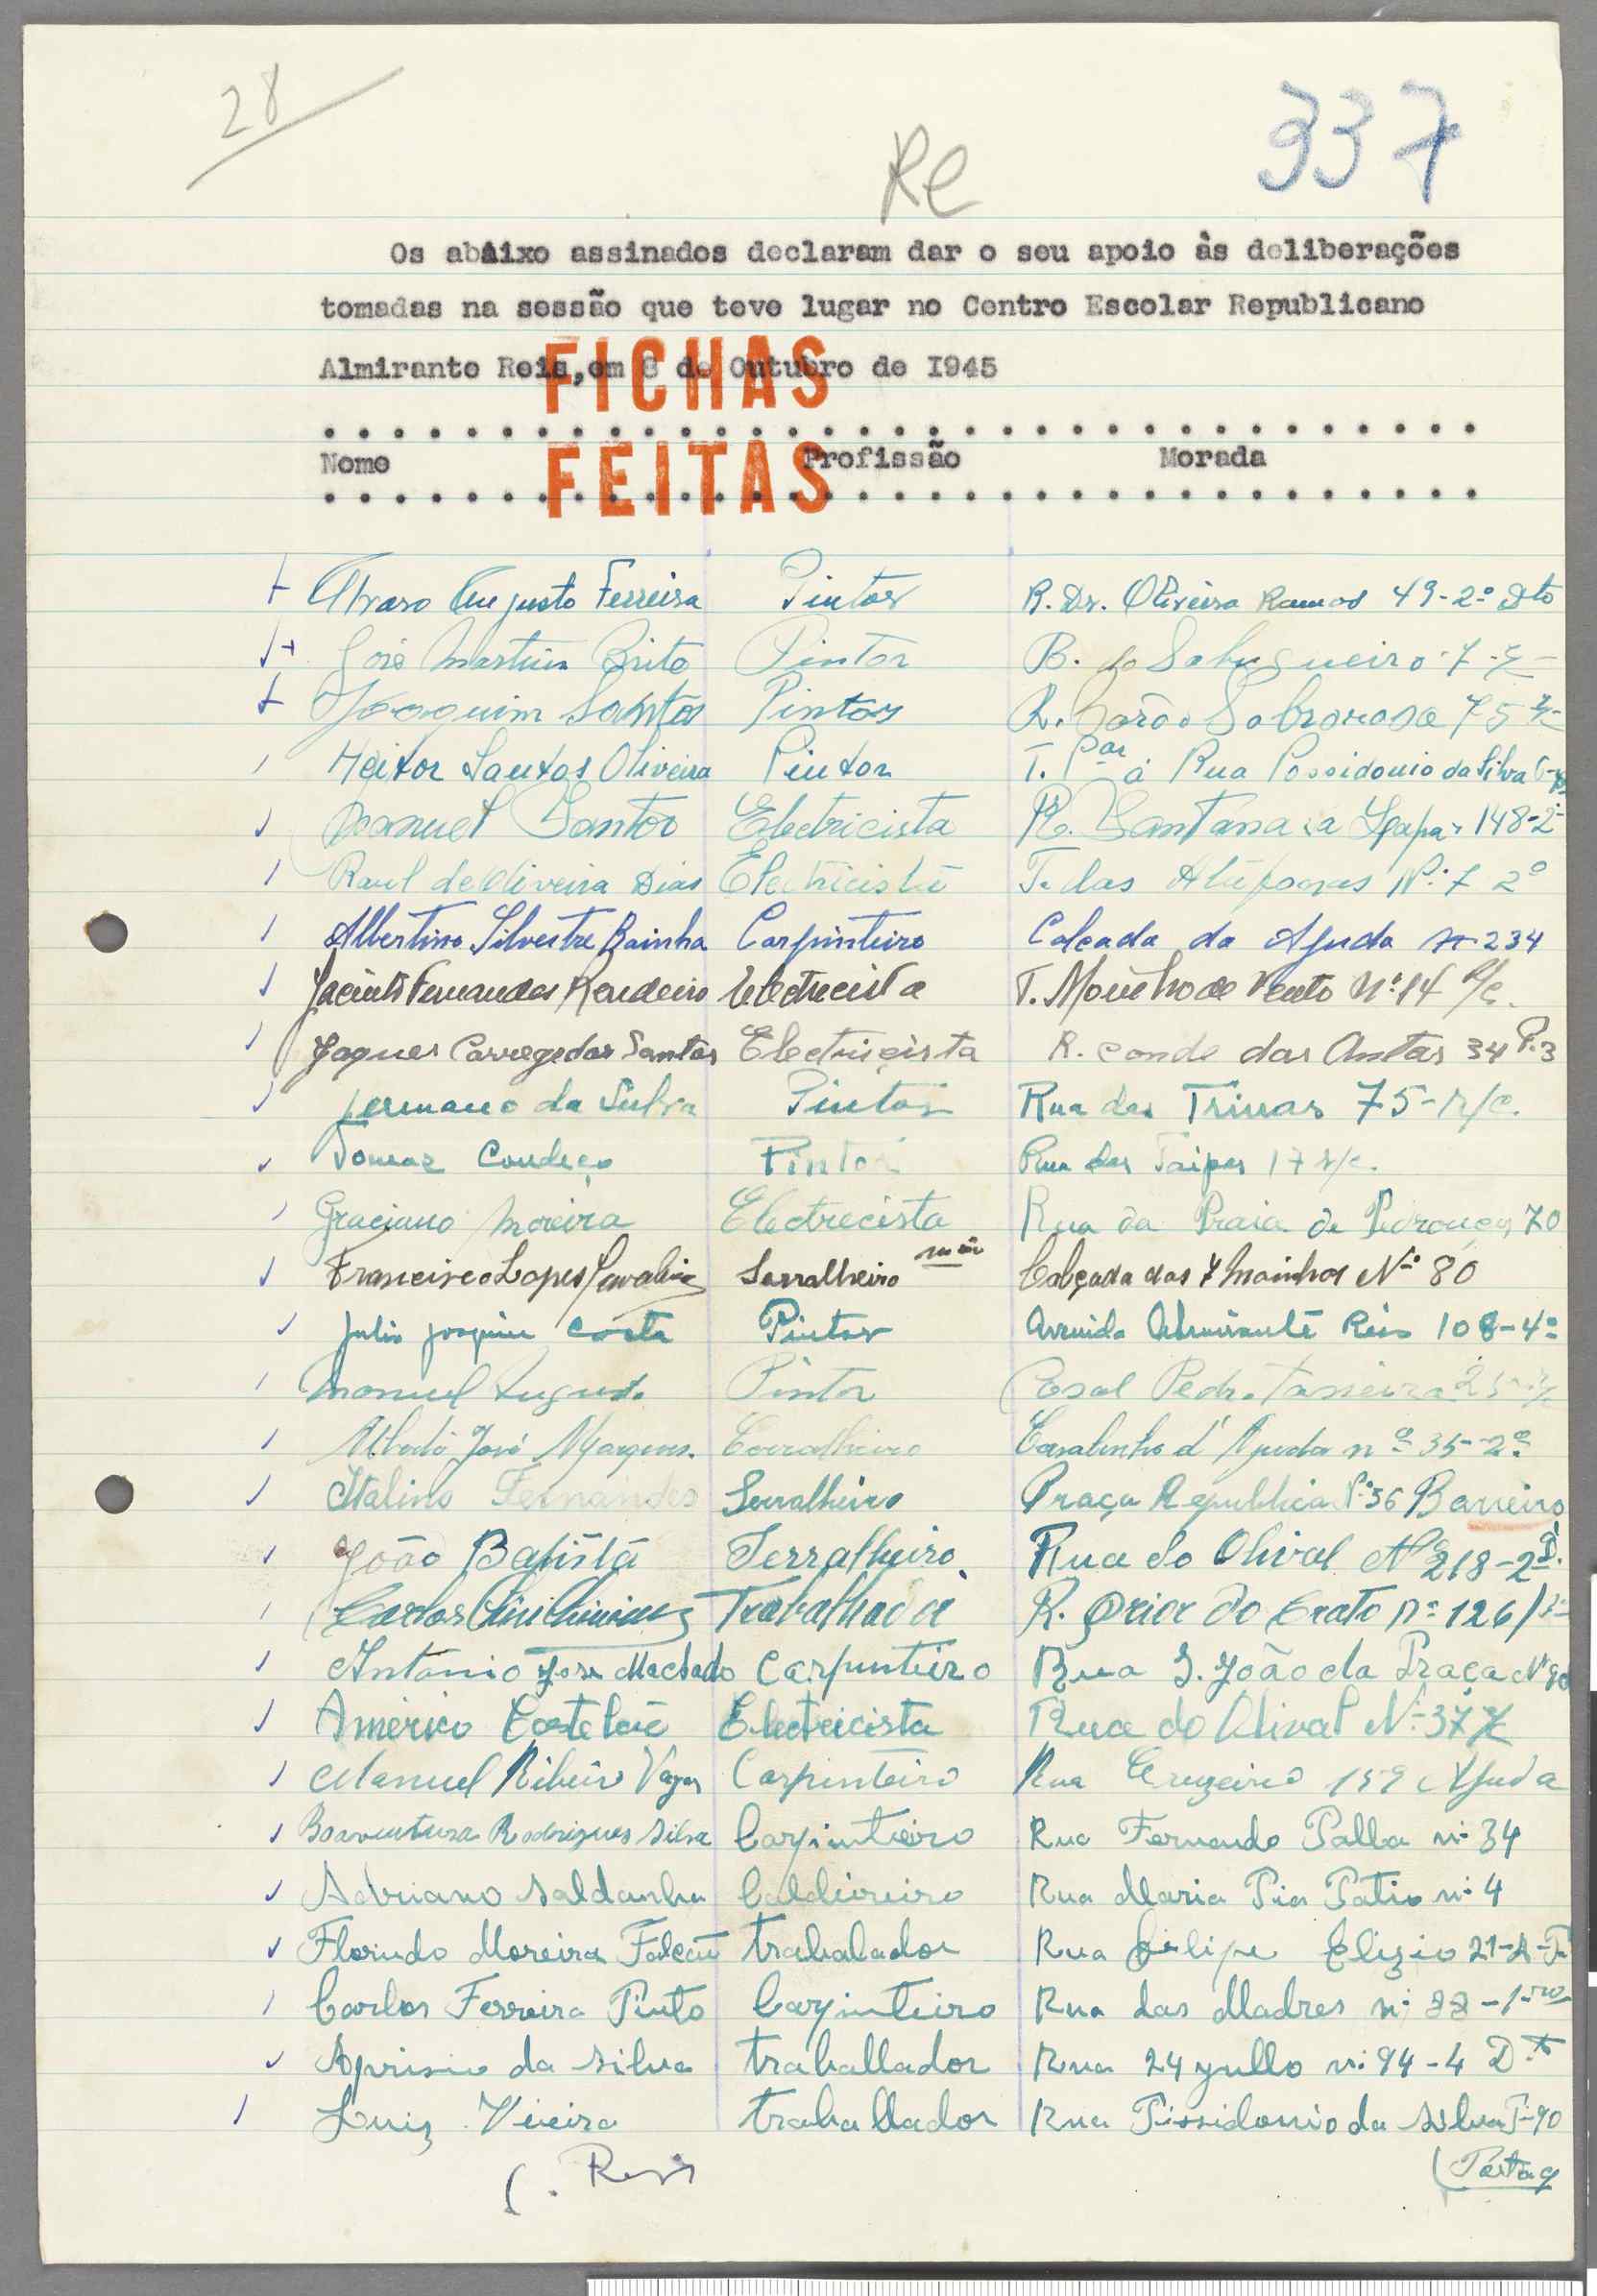 28
337
Re
Os abaixo assinados declaram dar o seu apoio às deliberações
tomadas na sessão que teve lugar no Centro Escolar Republicano
Almirante Reis, em 8 de Outubro de I945
FICHAS
FEITAS
Nome Profissão Morada
Alvaro Augusto Ferreira Pintor R. Dr. Oliveira Ramos 49-2º Dto
José Martins Brito Pintor B. do Sabugueiro 7
Joaquim Santos Pintor R. Barão Sabrorosa 75
Heitor Santos Oliveira Pintor T. Par á Rua Possidonio da Silva
Manuel Santos Electricista R. Santana a Lapa 148-2º
Raul de Oliveira Dias Electricista T. das Nº 7 2º
Albertino Silvestre Rainha Carpinteiro Calçada da Ajuda nº 234
Jacinto Fernandes Rendeiro Electrecista T. Moinho de Vento Nº 14 R/c.
Jaques Carregedor Santos Electriçista R. conde das Antas 34 P.3
Jermano da Silva Pintor Rua das Trinas 75-R/c.
Tomaz Condeço Pintor Rua das Taipas 17 r/c.
Graciano Moreira Electrecista Rua da Praia de Pedrouços, 70
Francisco Lopes Serralheiro Calçada dos 7 Moinhos Nº 80
Julio Joaquim Costa Pintor Avenida Almirante Reis 108-4º
Manuel Augusto Pintor Casal Pedro
Alberto José Marques. Cerralheiro Casalinho d'Ajuda nº 35-2º
Italino Fernandes Serralheiro Praça Republica Nº 36 Barreiro
João Batista Serralheiro. Rua do Olival Nº 218-2º D.
Carlos Trabalhador R. Prior do Crato nº 126
António José Machado Carpinteiro Rua S. João da Praça Nº 90
Américo Castelão Electricista Rua do Olival Nº 37
Manuel Ribeiro Vagos Carpinteiro Rua Cruzeiro 159 Ajuda
Boaventura Rodrigues Silva Carpinteiro Rua Fernando Palha nº 34
Adriano Saldanha Caldireiro Rua Maria Pia Patio nº 4
Florindo Moreira Falcão trabalador Rua Filipe Elizio 21-A
Carlos Ferreira Pinto Carpinteiro Rua das Madres nº 22-1º
Aprisio da Silva traballador Rua 24 Jullo nº 94-4 Dto
Luiz Vieira traballador Rua Pissidonio da Silva P-90